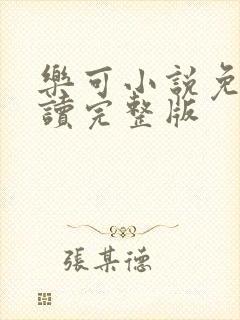 樂可小說免
讀完整版
張某德